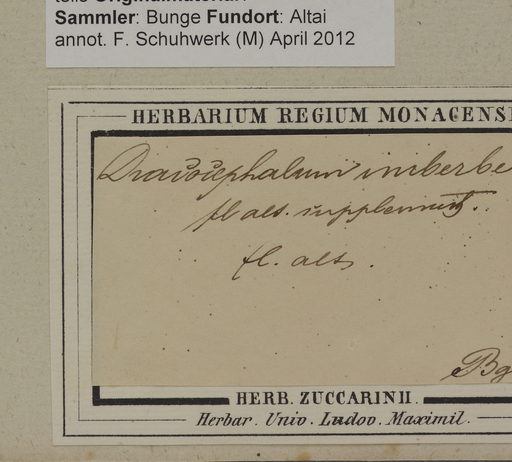 Sammler: Bunge Fundort: Altai
annot. F. Schuhwerk (M) April 2012
HERBARIUM REGIUM MONACENSI
Dracocephalum imberbe
fl. alt. supplement.
fl. alt.
Bg
HERB. ZUCCARINII.
Herbar. Univ. Ludov. Maximil.